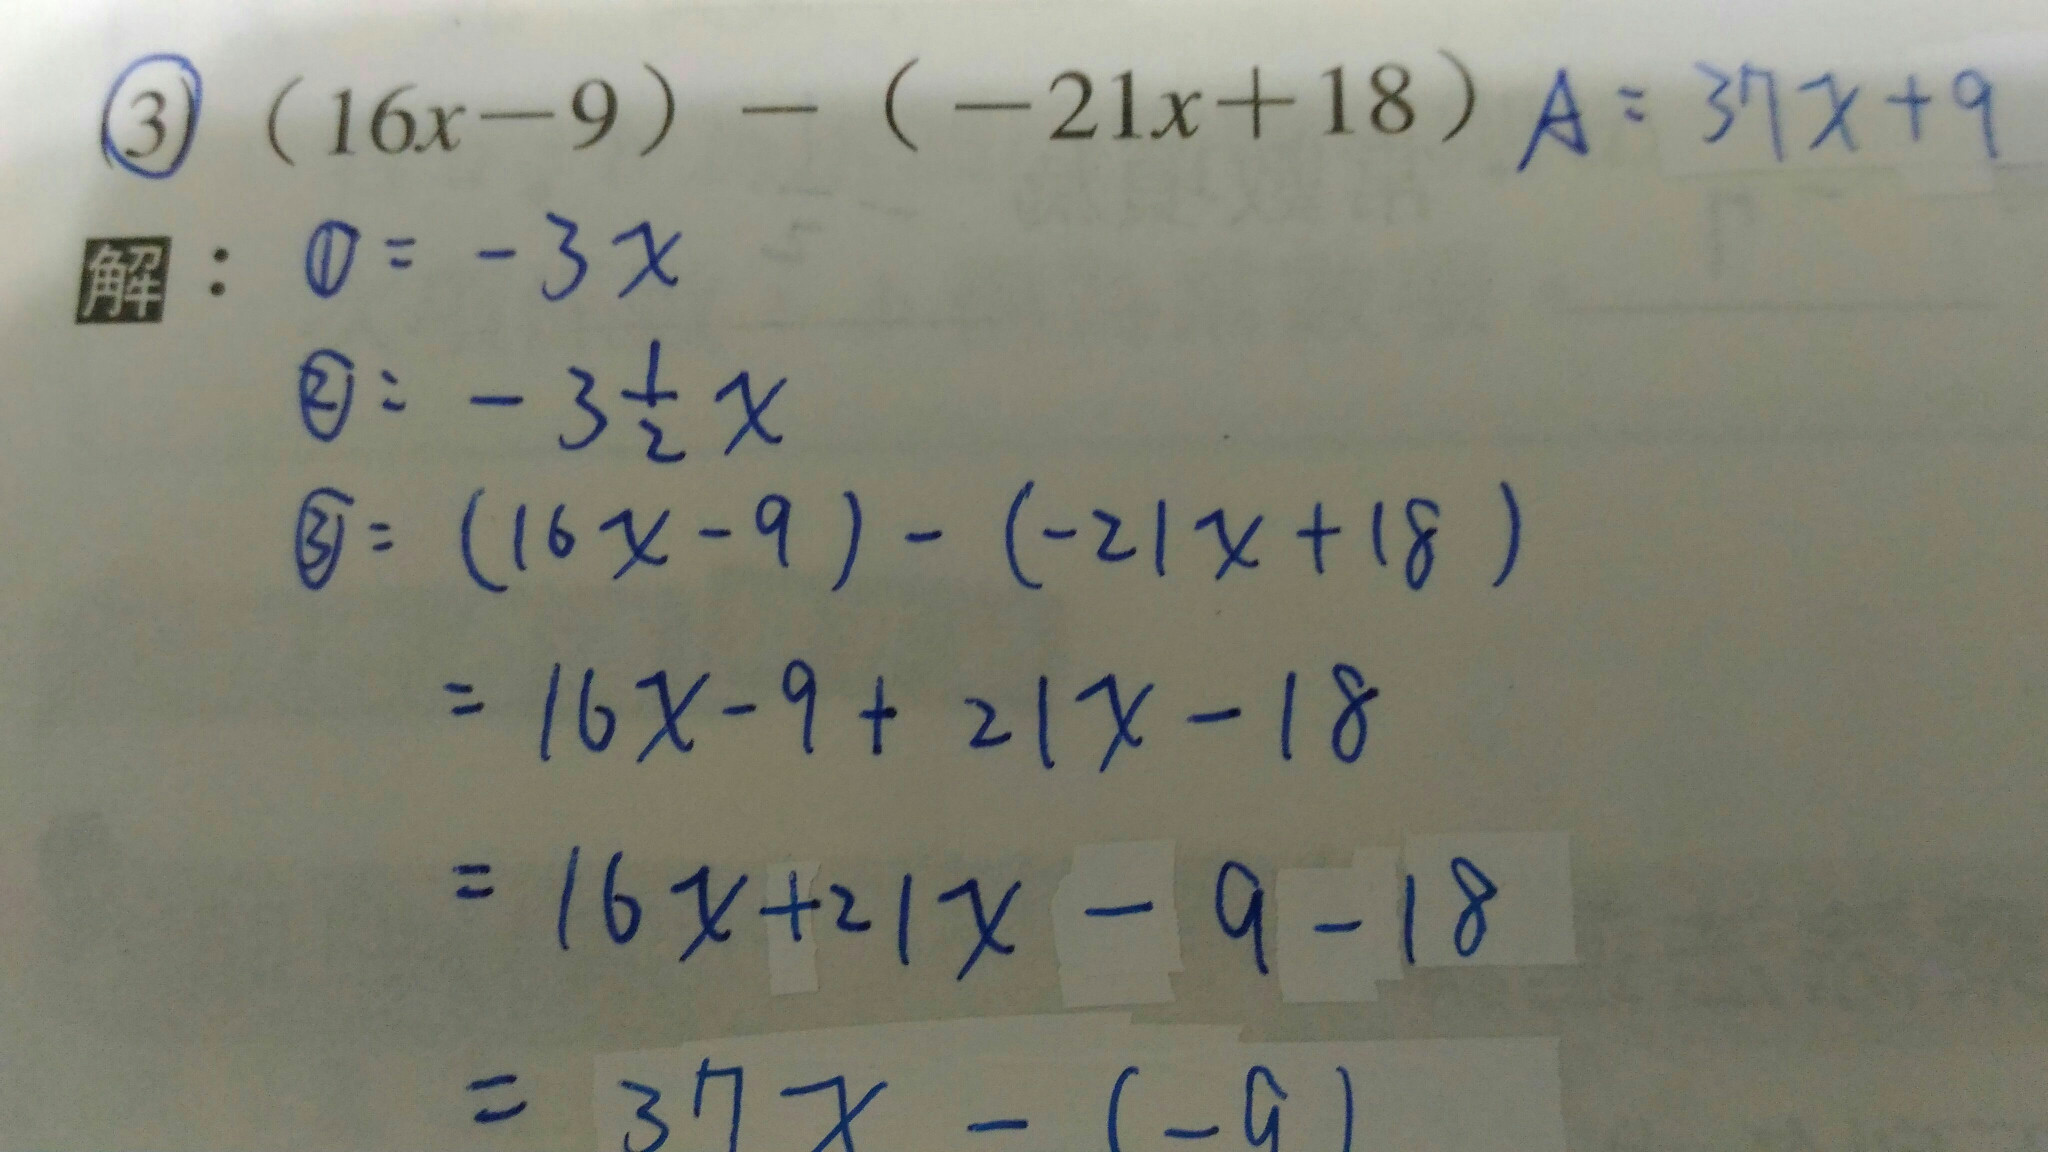 ③ (16x－9)－(－21x＋18) A = 37x+9
解： ① = -3x
② = -3 1/2 x
③ = (16x-9) - (-21x+18)
= 16x-9+21x-18
= 16x+21x-9-18
= 37x-(-9)